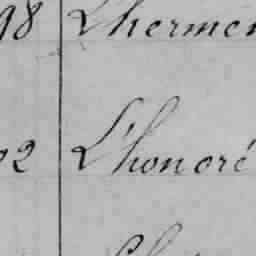 98 Lhermen
02 L'honoré